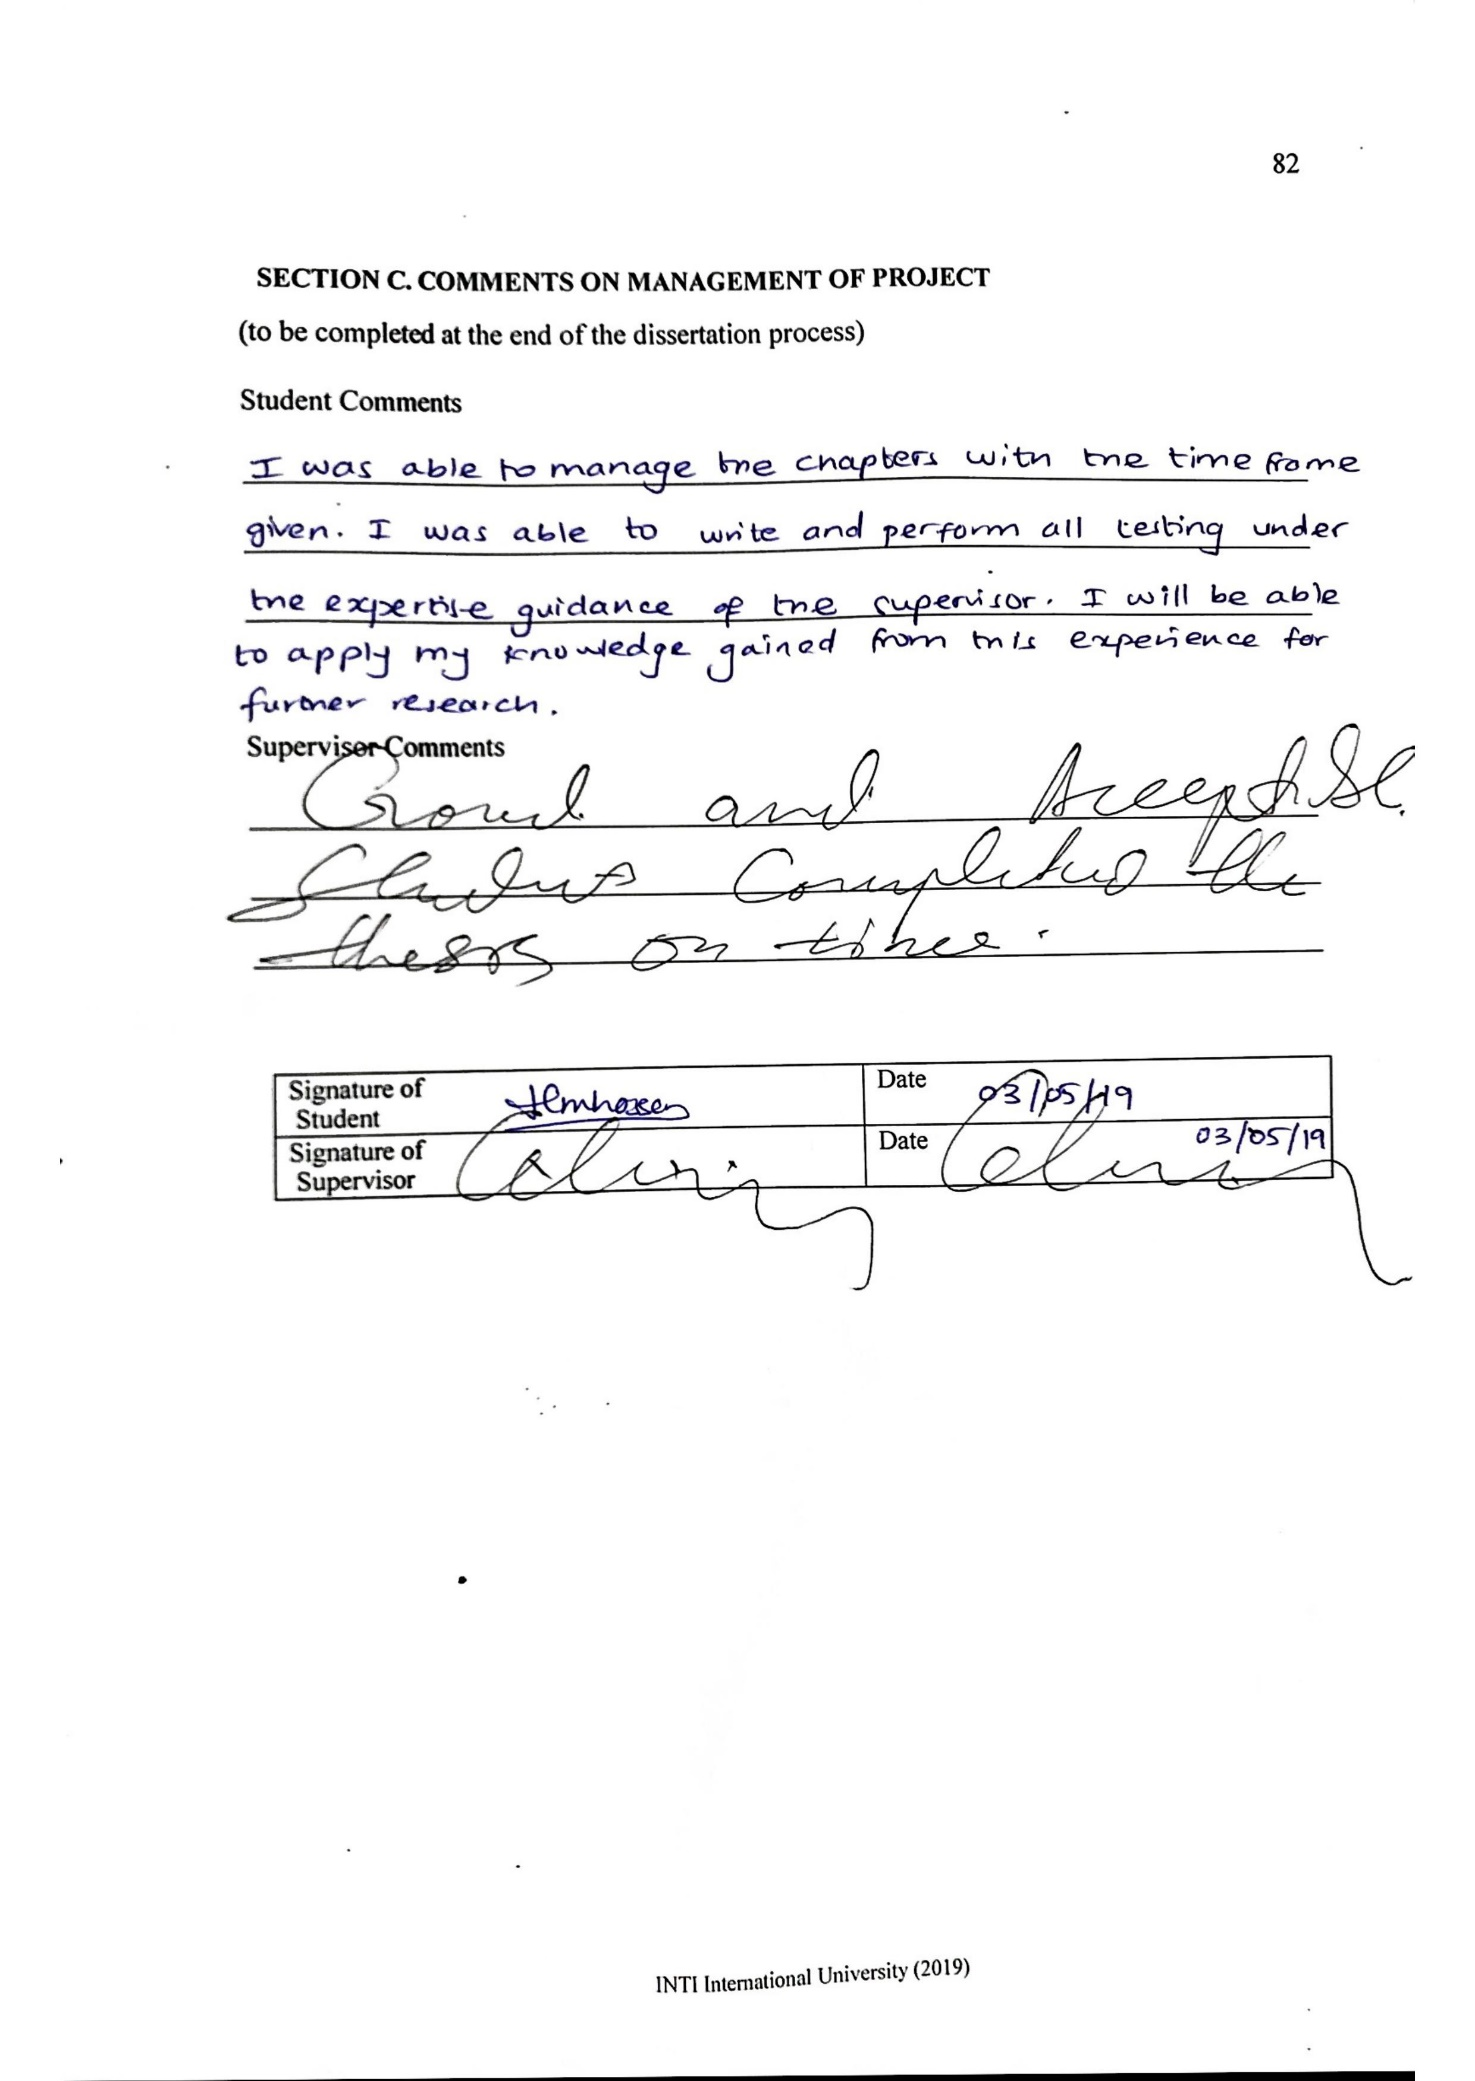 82
SECTION C. COMMENTS ON MANAGEMENT OF PROJECT
(to be completed at the end of the dissertation process)
Student Comments
I was able to manage the chapters with the time frame
given. I was able to write and perform all testing under
the expertise guidance of the supervisor. I will be able
to apply my knowledge gained from this experience for
further research.
Supervisor Comments
Good and
Student Completed the
thesis on time.
Signature of Student Date 03/05/19
Signature of Supervisor Date 03/05/19
INTI International University (2019)